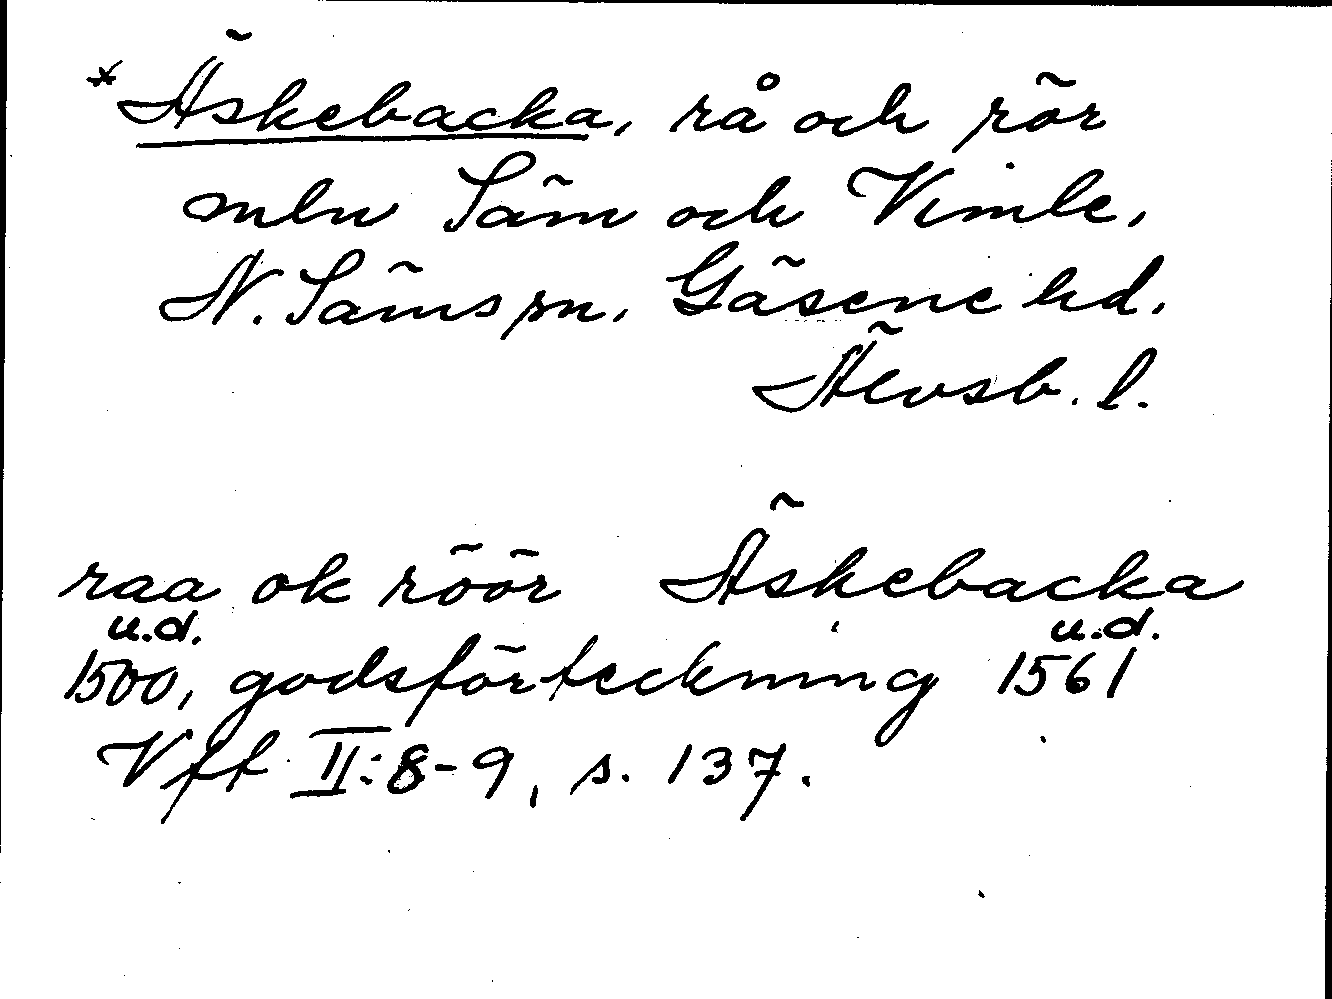 *Äskebacka, rå och rör
mln Säm och Vimle,
N. Säms sn, Gäsene hd.
Älvsb. l.
raa ok röör Äskebacka
u.d. u.d.
1500, godsförteckning 1561
Vff II:8-9, s. 137.